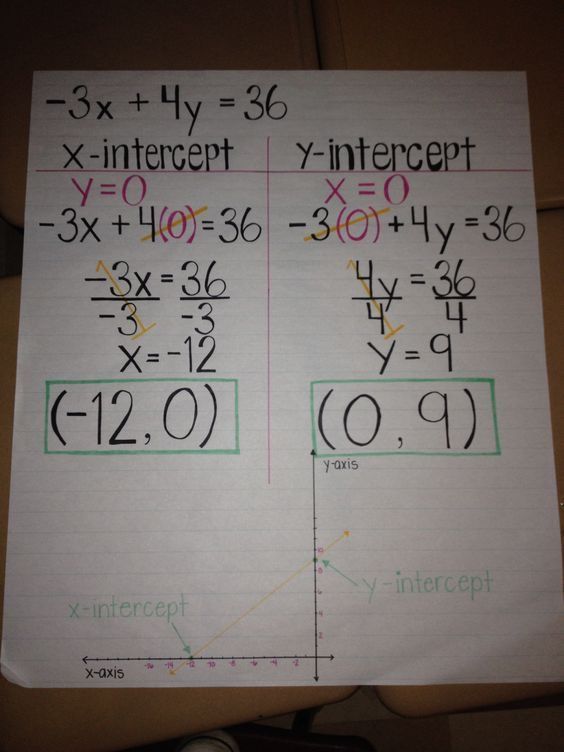 -3x + 4y = 36
x-intercept
y=0
-3x + 4(0) = 36
-3x = 36
-3 -3
x = -12
(-12, 0)
y-intercept
x = 0
-3(0) + 4y = 36
4y = 36
4 4
y = 9
(0, 9)
y-axis
10
8
6
4
2
y-intercept
x-intercept
-16 -14 -12 -10 -8 -6 -4 -2
x-axis